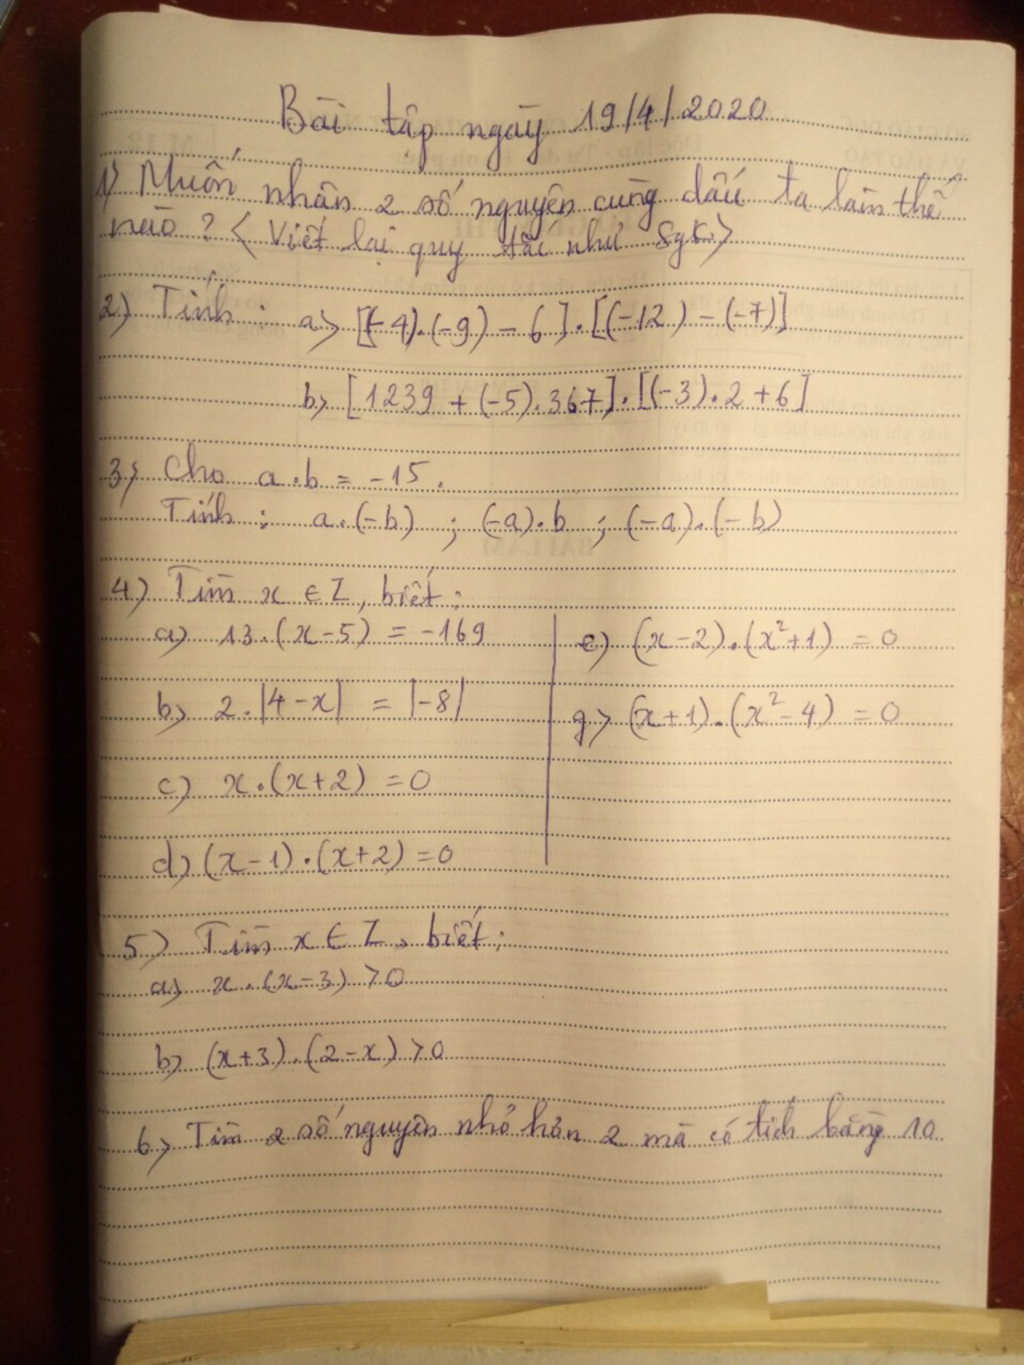 Bài tập ngày 19/4/2020
1) Muốn nhân 2 số nguyên cùng dấu ta làm thế
nào? < Viết lại quy tắc như sgk >
2) Tính: a> [(-4).(-9) - 6].[(-12) - (-7)]
b> [1239 + (-5).367].[(-3).2 + 6]
3) Cho a.b = -15.
Tính: a.(-b) ; (-a).b ; (-a).(-b)
4) Tìm x ∈ Z, biết:
a) 13.(x-5) = -169
b) 2.|4-x| = |-8|
c) x.(x+2) = 0
d) (x-1).(x+2) = 0
e) (x-2).(x²+1) = 0
g> (x+1).(x²-4) = 0
5) Tìm x ∈ Z, biết:
a) x.(x-3) > 0
b) (x+3).(2-x) > 0
6) Tìm 2 số nguyên nhỏ hơn 2 mà có tích bằng 10